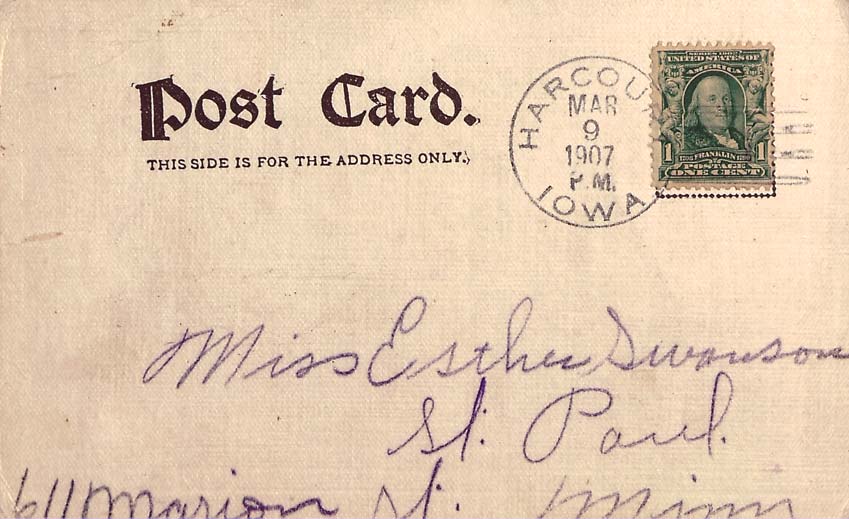 Post Card.
THIS SIDE IS FOR THE ADDRESS ONLY.
HARCOU
MAR
9
1907
P.M.
IOWA
SERIES 1902
UNITED STATES OF
AMERICA
1 FRANKLIN 1
POSTAGE
ONE CENT
Miss Esther Swanson
St. Paul.
611 Marion St. Minn